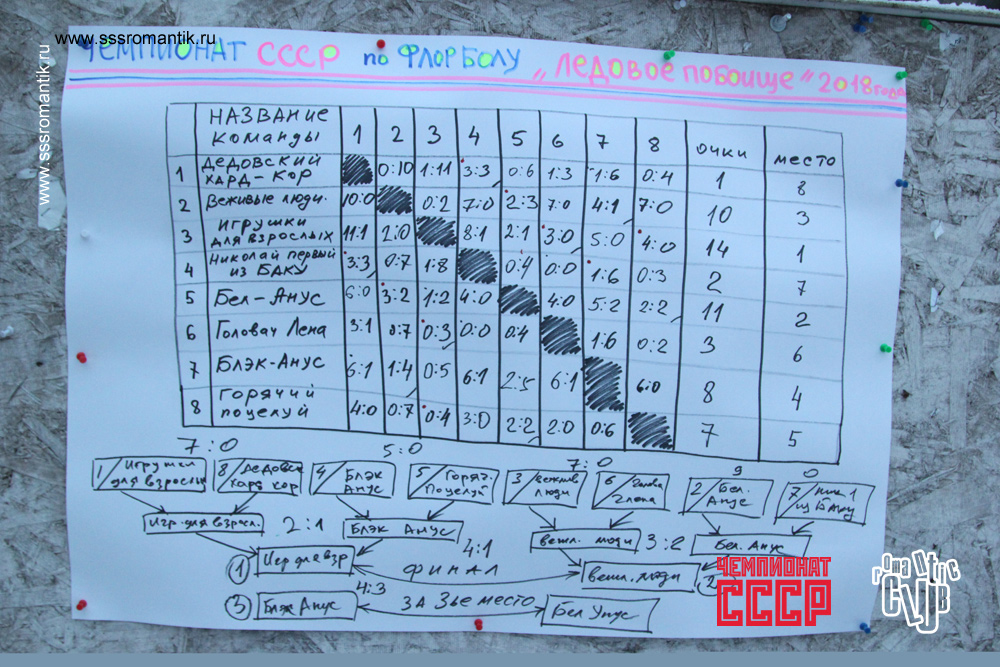 www.sssromantik.ru
www.sssromantik.ru
ЧЕМПИОНАТ СССР по ФЛОРБОЛУ „ЛЕДОВОЕ ПОБОИЩЕ" 2018 года
НАЗВАНИЕ КОМАНДЫ 1 2 3 4 5 6 7 8 ОЧКИ МЕСТО
1 ДЕДОВСКИЙ ХАРД-КОР 0:10 1:11 3:3 0:6 1:3 1:6 0:4 1 8
2 Веживые люди. 10:0 0:2 7:0 2:3 7:0 4:1 7:0 10 3
3 ИГРУШКИ ДЛЯ ВЗРОСЛЫХ 11:1 2:0 8:1 2:1 3:0 5:0 4:0 14 1
4 Николай первый из БАКУ 3:3 0:7 1:8 0:4 0:0 1:6 0:3 2 7
5 Бел-Анус 6:0 3:2 1:2 4:0 4:0 5:2 2:2 11 2
6 Головач Лена 3:1 0:7 0:3 0:0 0:4 1:6 0:2 3 6
7 Блэк-Анус 6:1 1:4 0:5 6:1 2:5 6:1 6:0 8 4
8 ГОРЯЧИЙ поцелуй 4:0 0:7 0:4 3:0 2:2 2:0 0:6 7 5
7:0 5:0 7:0 9 0
1/Игрушки для взрослы 8/Дедовск хард кор 4/Блэк Анус 5/Горяч. Поцелуй 3/вежлив люди 6/ 2/Бел. Анус 7/
Игр.для взросл. 2:1 Блэк Анус вежл. люди 3:2 Бел. Анус
1 Игр для взр 4:1 ФИНАЛ вежл. люди 2
3 Блэк Анус 4:3 ЗА 3ье место Бел Унус
ЧЕМПИОНАТ
СССР
romantic
CLUB